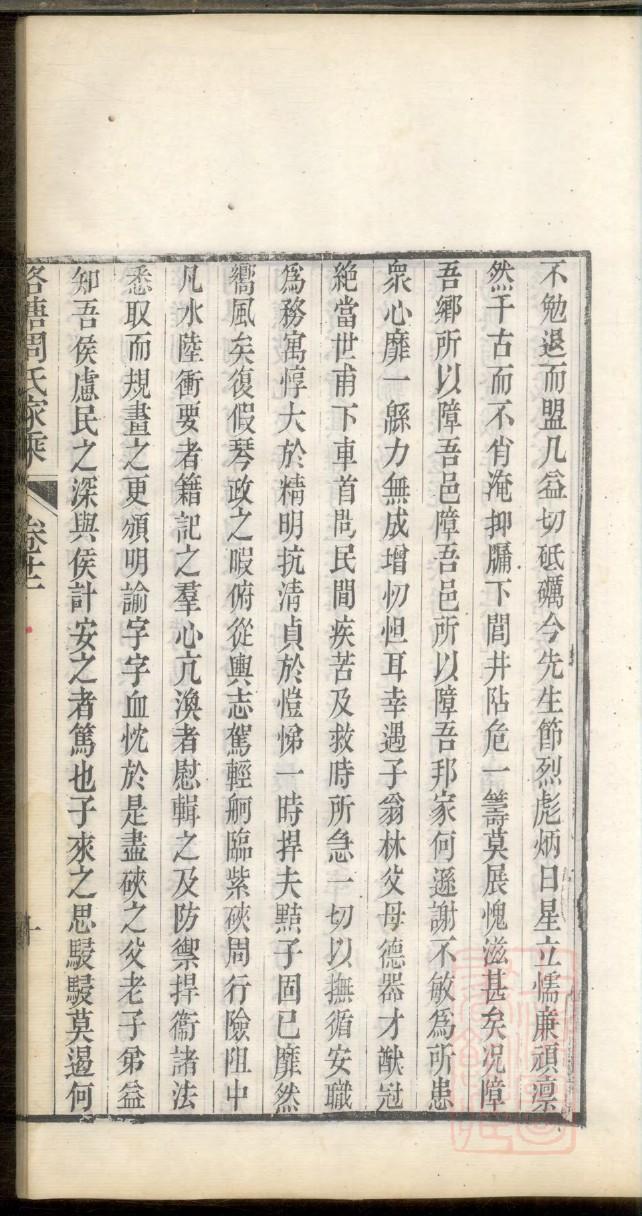 不勉退而盟几益切砥礪今先生節烈彪炳日星立懦廉頑凛
然千古而不肖淹抑牖下閭井阽危一籌莫展愧滋甚矣况障
吾鄉所以障吾邑障吾邑所以障吾邦家何遜謝不敏爲所患
衆心靡一緜力無成增忉怛耳幸遇子翁林父母德器才猷冠
絶當世甫下車首問民間疾苦及救時所急一切以撫循安職
爲務寓惇大於精明抗清貞於愷悌一時捍夫黠子固已靡然
嚮風矣復假琴政之暇俯從輿志駕輕舸臨紫硤周行險阻中
凡水陸衝要者籍記之羣心亢渙者慰輯之及防禦捍衞諸法
悉取而規畫之更頒明諭字字血忱於是盡硤之父老子弟益
知吾侯慮民之深與侯計安之者篤也子來之思駸駸莫遏何
洛塘周氏家乘
卷十二
十